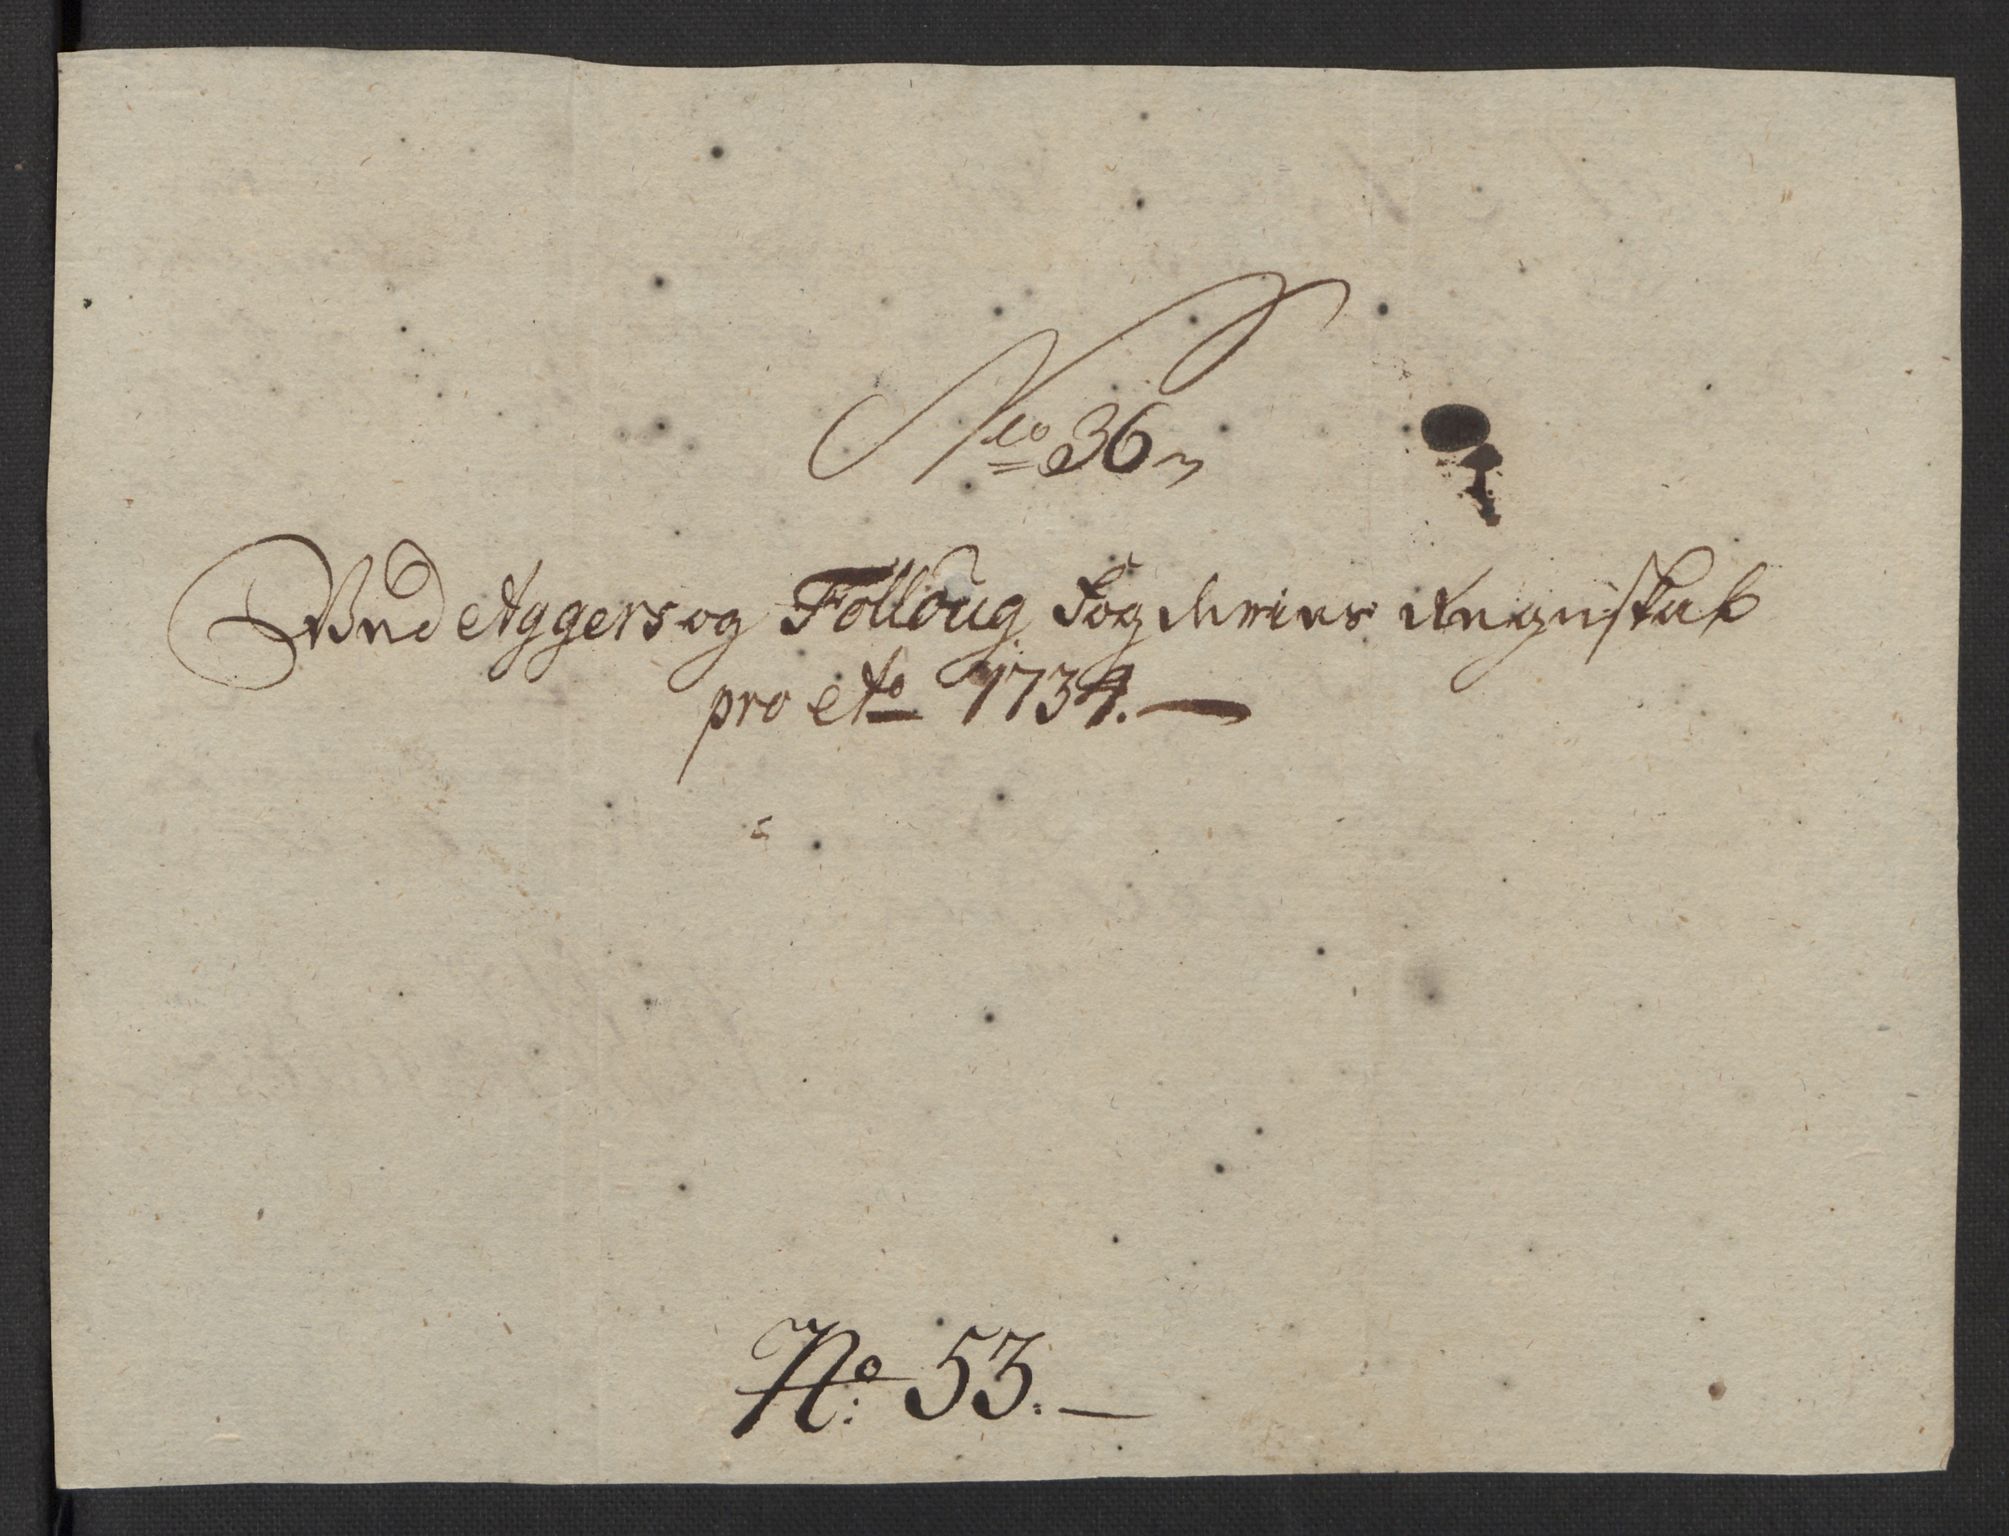 Nro 36
Ved Aggers og Folloug Fogderies Regnskab
pro Ao 1734.
No: 53.